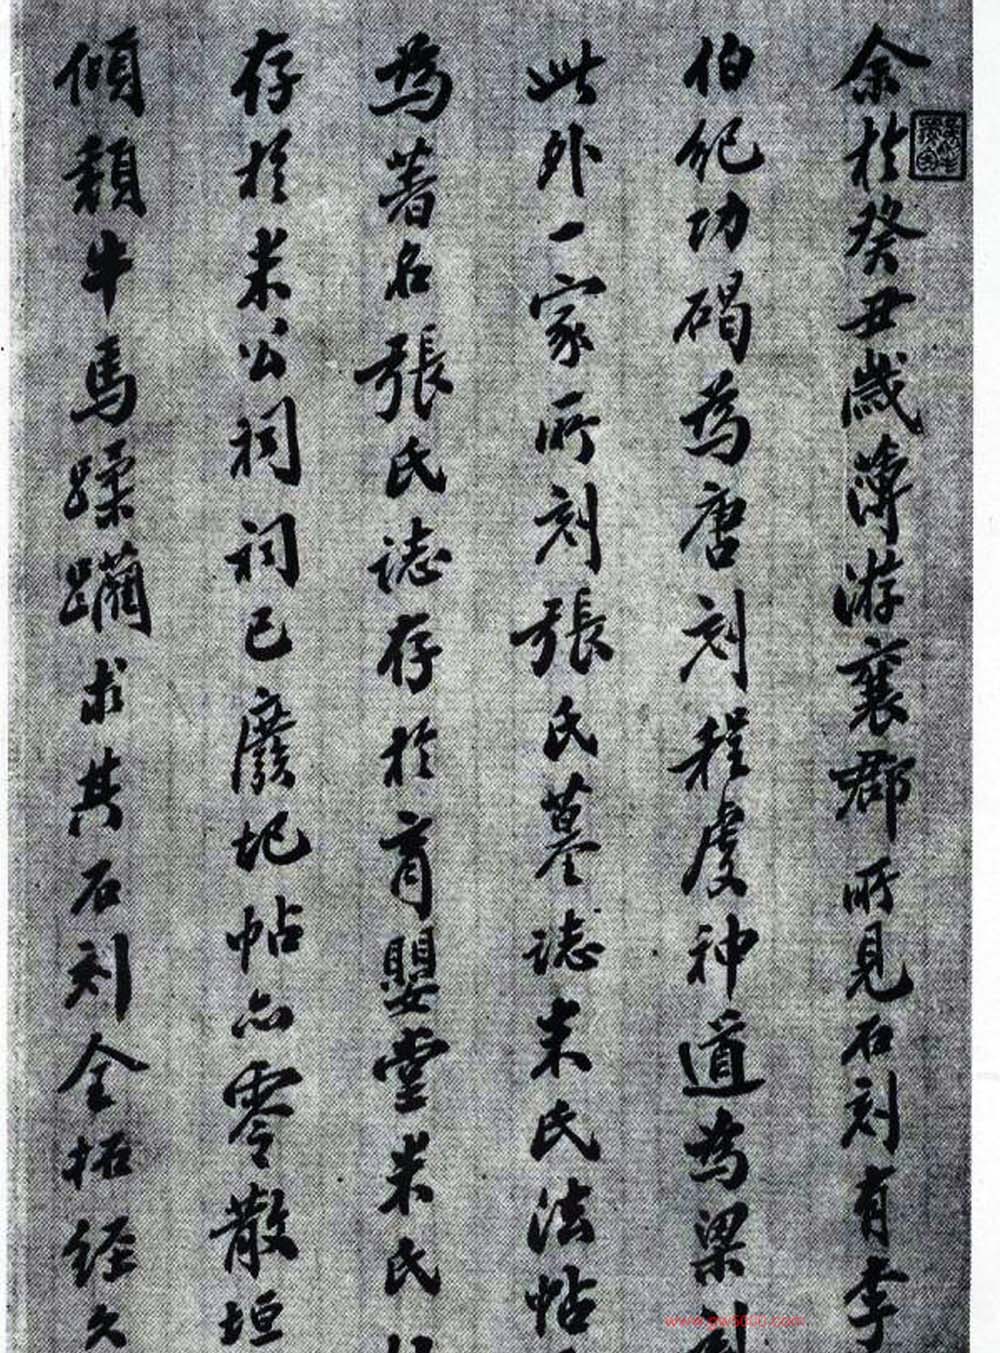 余於癸丑歲薄游襄郡所見石刻有李
伯紀功碣為唐刻程虔神道為梁刻
此外一家所刻張氏墓誌米氏法帖
為著名張氏誌存於育嬰堂米氏
存於米公祠祠已廢圮帖亦零散垣
傾頹牛馬蹂躪求其石刻全拓經久
www.gw5000.com